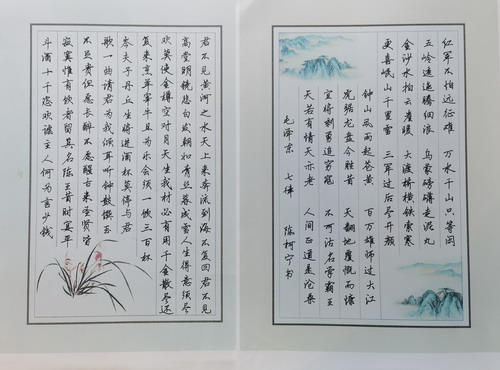 君不见黄河之水天上来奔流到海不复回君不见
高堂明镜悲白发朝如青丝暮成雪人生得意须尽
欢莫使金樽空对月天生我材必有用千金散尽还
复来烹羊宰牛且为乐会须一饮三百杯
岑夫子丹丘生将进酒杯莫停与君
歌一曲请君为我倾耳听钟鼓馔玉
不足贵但愿长醉不愿醒古来圣贤皆
寂寞惟有饮者留其名陈王昔时宴平
斗酒十千恣欢谑主人何为言少钱
红军不怕远征难 万水千山只等闲
五岭逶迤腾细浪 乌蒙磅礴走泥丸
金沙水拍云崖暖 大渡桥横铁索寒
更喜岷山千里雪 三军过后尽开颜
钟山风雨起苍黄 百万雄师过大江
虎踞龙盘今胜昔 天翻地覆慨而慷
宜将剩勇追穷寇 不可沽名学霸王
天若有情天亦老 人间正道是沧桑
毛泽东 七律 陈柯宁书